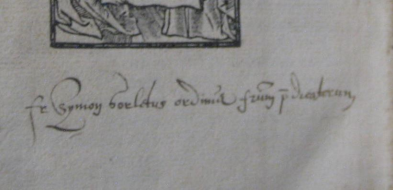 fr Symon borletus ordinis frum pdicatorum